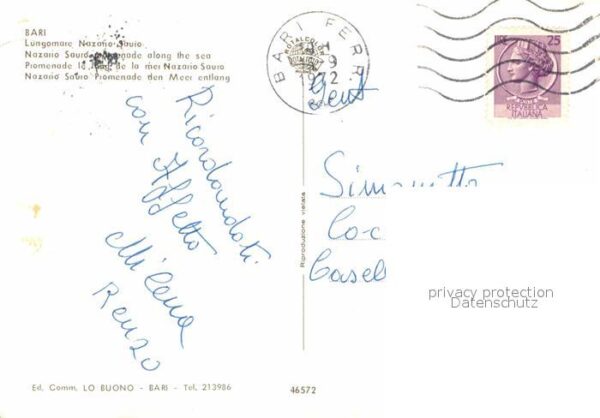 BARI
Lungomare Nazario Sauro
Nazario Sauro Promenade along the sea
Promenade le long de la mer Nazario Sauro
Nazario Sauro Promenade den Meer entlang
BARI FERR.
1972
25
REPUBBLICA
ITALIANA
Ricordandoti
con Affetto
Milena
Renzo
Gent
Simonetta
Casel
Riproduzione vietata
privacy protection
Datenschutz
Ed. Comm. LO BUONO - BARI - Tel. 213986
46572